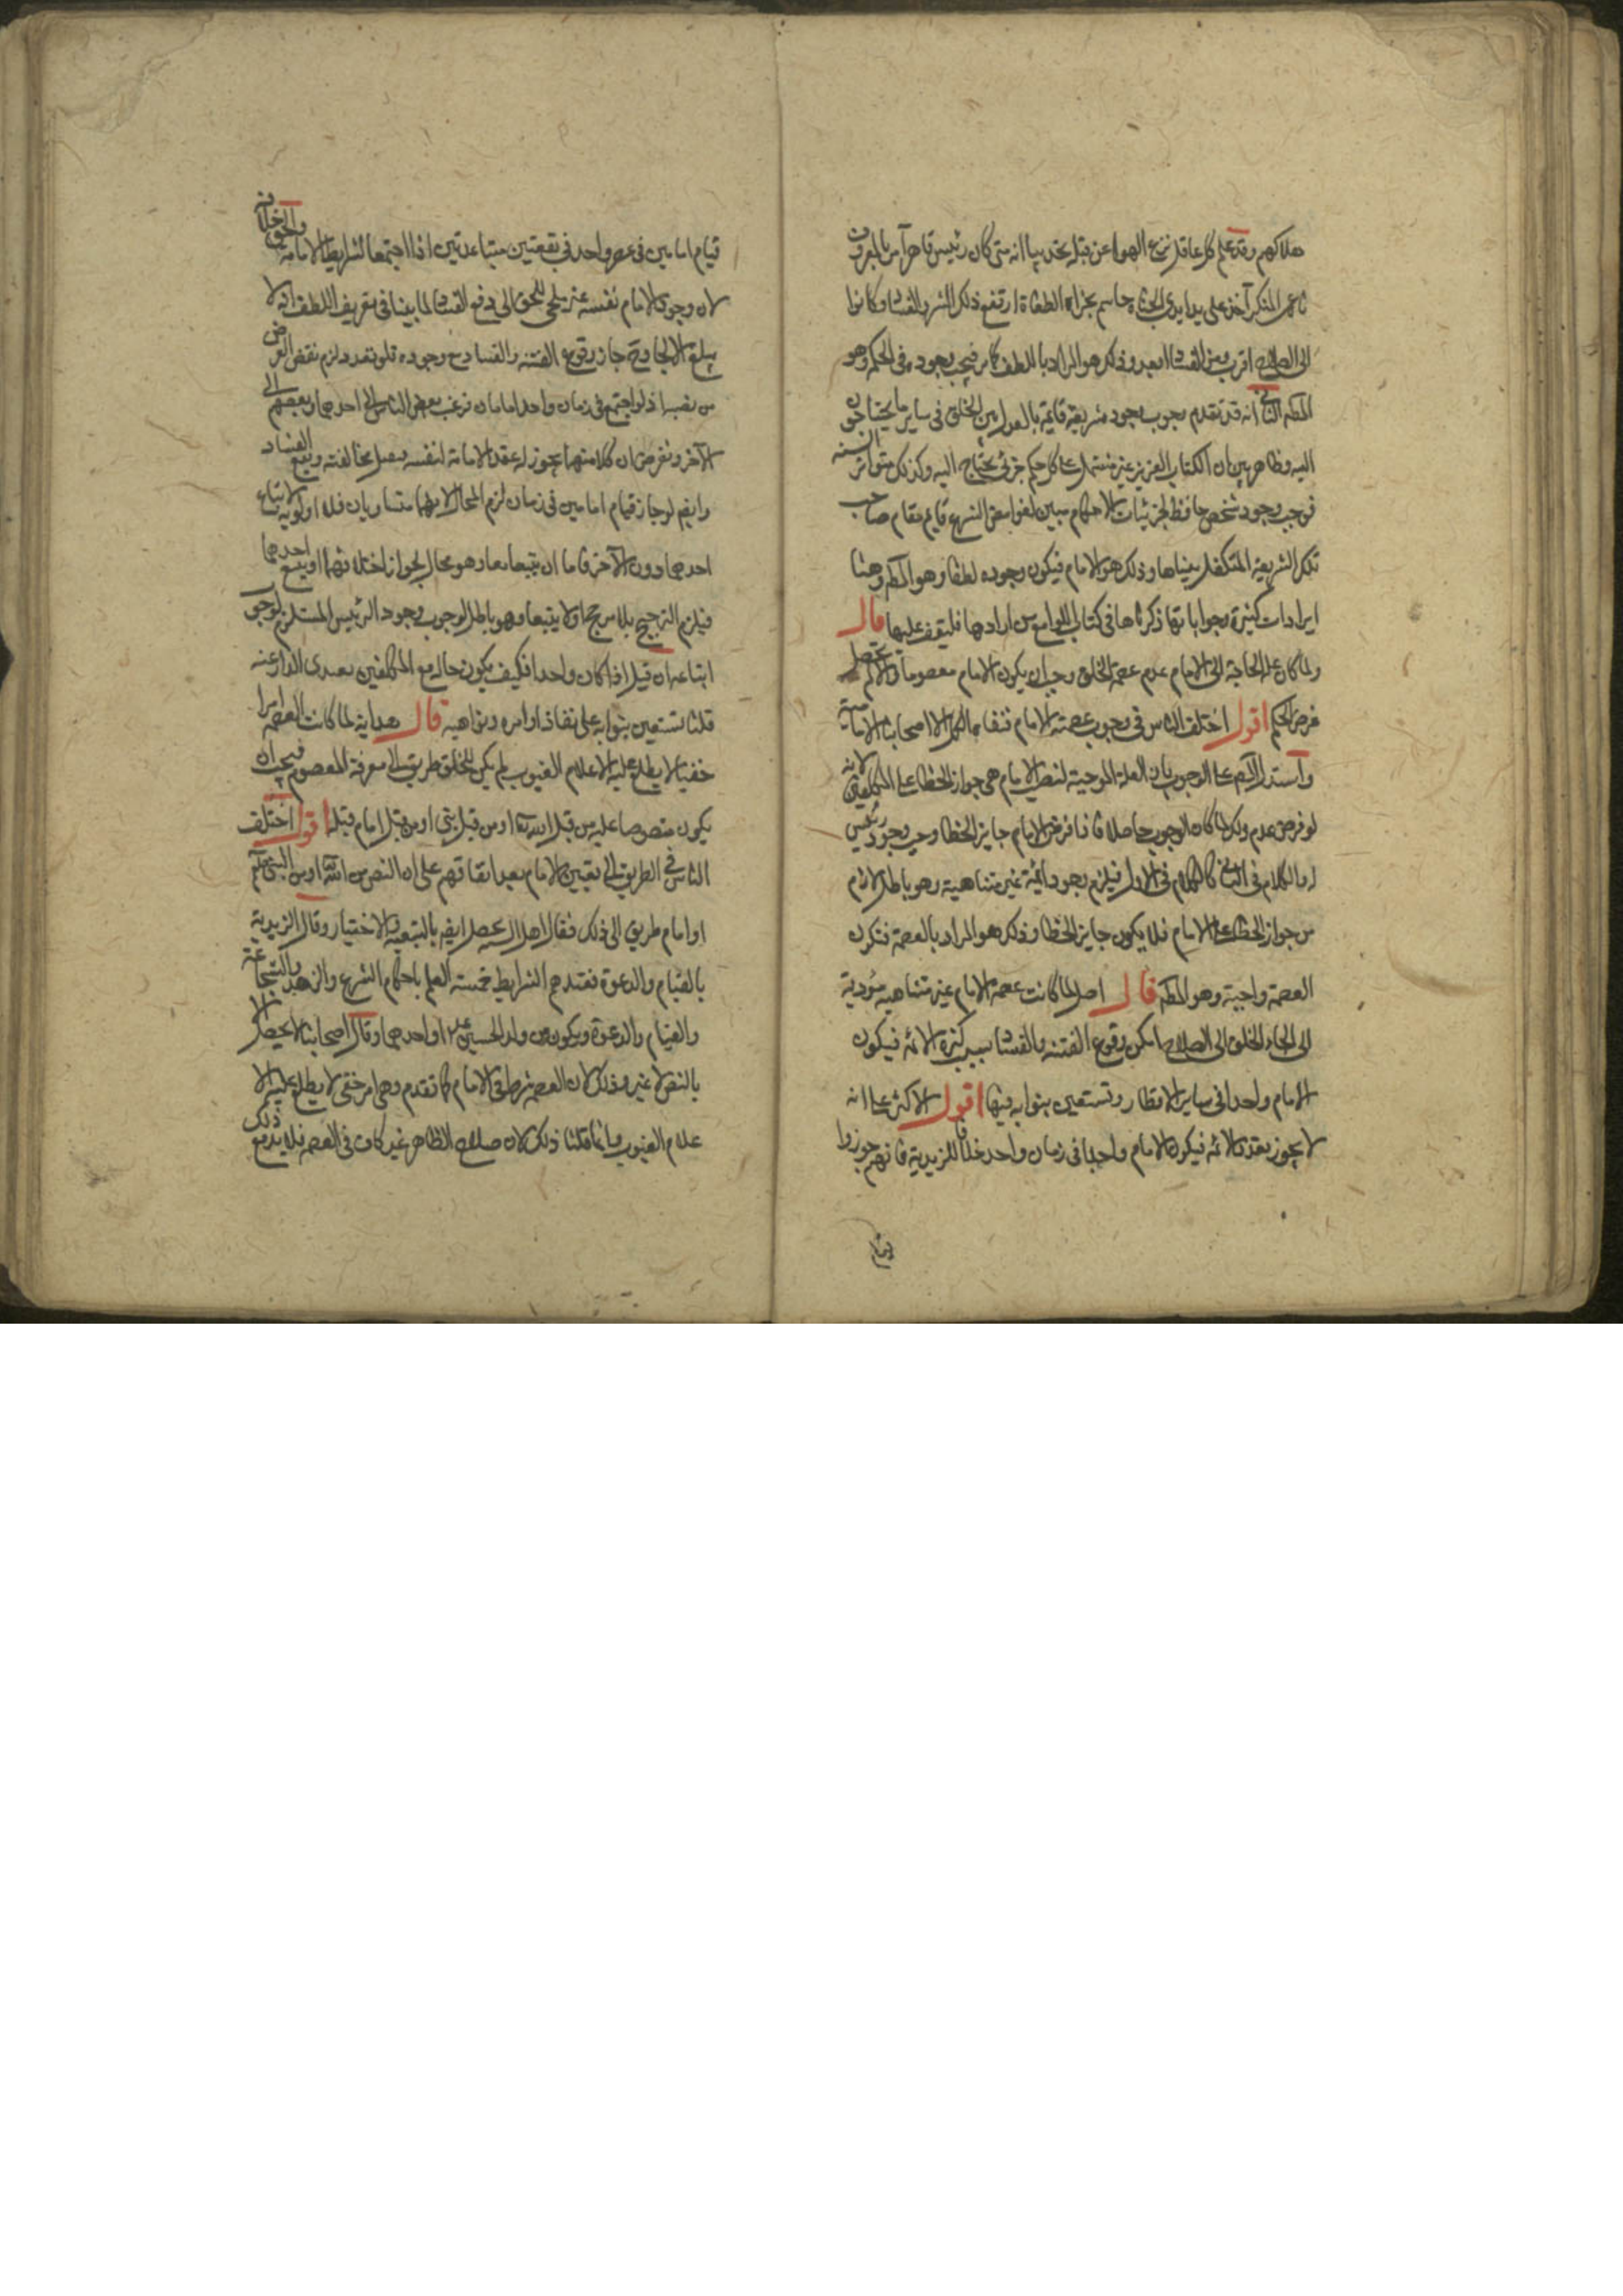 هلاكهم وقد علم كل عاقل نزع الهوا عن قبله يخدينا انه متى كان رئيس قاهر آمر بالمعروف
ناهى المنكر آخذ على يد ايدى الجناه حاسم بجزاه الطغاة ارتفع ذلك الشر والفساد وكانوا
الى الصلاح اقرب ومن الفساد ابعد وذلك هو المراد باللطف كما مر فيجب وجوده فى الحكمة وهو
المط الثانى انه قد تقدم وجوب وجود شريعة قايمة بالعدل بين الخلق فى ساير ما يحتاجون
اليه وظاهر بين ان الكتاب العزيز غير مشتمل على كل حكم جزئى يحتاج اليه وكذلك متواتر السنه
فوجب وجود شخص حافظ لجزئيات الاحكام مبين لغوامض الشرع قايم مقام صاحب
تلك الشريعة المتكفل ببنياها وذلك هو الامام فيكون وجوده لطفا وهو المط وهنا
ايرادات كثيرة وجواباتها ذكرناها فى كتاب اللوامع من ارادها فليقف عليها قال
ولما كان علة الحاجة الى الامام عدم عصمة الخلق وجب ان يكون الامام معصوما والا لم يحصل
غرض الحكيم اقول اختلف الناس فى وجوب عصمة الامام فنفاه الكل الا اصحابنا الامامية
واستدل المص على الوجوب بان العلة الموجبة لنصب الامام هى جواز الخطا على المكلفين لانه
لو فرض عدم ذلك لما كان الوجوب حاصلا فاذا فرض الامام جايز الخطا وجب وجود رئيس
له والكلام فى الثانى كالكلام فى الاول فيلزم وجود ائمة غير متناهية وهو باطل لازم
من جواز الخطا على الامام فلا يكون جايز الخطا وذلك هو المراد بالعصمة فتكون
العصمة واجبة وهو المط قال اصل لما كانت عصمة الامام غير متناهيه مؤدية
الى الجاء الخلق الى الصلاح امكن وقوع الفتنه والفساد بسبب كثرة الائمه فيكون
الامام واحدا فى ساير الاقطار وتستعين بنوابه فيها اقول الاكثر على انه
لا يجوز تعدد الائمه فيكون الامام واحدا فى زمان واحد خلافا للزيدية فانهم جوزوا
قيام
قيام امامين فى عصر واحد فى بقعتين متباعدتين اذا اجتمعا لشرايط الامامة والحق خلافه
لان وجود الامام نفسه غير ملجى للخلق الى دفع الفساد لما بينا فى تعريف اللطف انه لا
يبلغ الالجا وح جاز وقوع الفتنه والفساد مع وجوده فلو تعدد لزم نقض الغرض
من نصبه اذ لو اجتمع فى زمان واحد امامان فرغب بعض الناس الى احدهما وبعضهم الى
الآخر ونفرض ان كلا منهما يجوز له عقد الامامة لنفسه فيحصل مخالفته ويقع الفساد
وايضا لو جاز قيام امامين فى زمان لزم المحال لانهما متساويان فلا اولويه لاتباع
احدهما دون الآخر فاما ان يتبعا معا وهو محال لجواز اختلافهما او يتبع احدهما
فيلزم الترجيح بلا مرجح او لا يتبعا وهو باطل لوجوب وجود الرئيس المستلزم لوجوب
اتباعه ان قيل اذا كان واحدا فكيف يكون حاله مع المكلفين بعيدى الدار عنه
قلنا تستعين بنوابه على نفاذ اوامره ونواهيه قال هداية لما كانت العصمه امرا
خفيا لا يطلع عليه الا علام الغيوب لم يكن للخلق طريق الى معرفة المعصوم فيجب ان
يكون منصوصا عليه من قبل الله تعا او من قبل نبى او من قبل امام قبله اقول اختلف
الناس فى الطريق الى تعيين الامام بعد اتفاقهم على ان النص من الله او من النبى
او امام طريق الى ذلك فقال اهل السنه يحصل ايضا بالبيعة والاختيار وقال الزيدية
بالقيام والدعوة فعندهم الشرايط خمسة العلم باحكام الشرع والزهد والشجاعة
والقيام والدعوة ويكون من ولد الحسنين او احدهما وقال اصحابنا لا يحصل الا
بالنص لا غير وذلك لان العصمه شرط فى الامام كما تقدم وهى امر خفى لا يطلع عليه الا
علام الغيوب وانما قلنا ذلك لان صلاح الظاهر غير كاف فى العصمه فلا بد مع ذلك